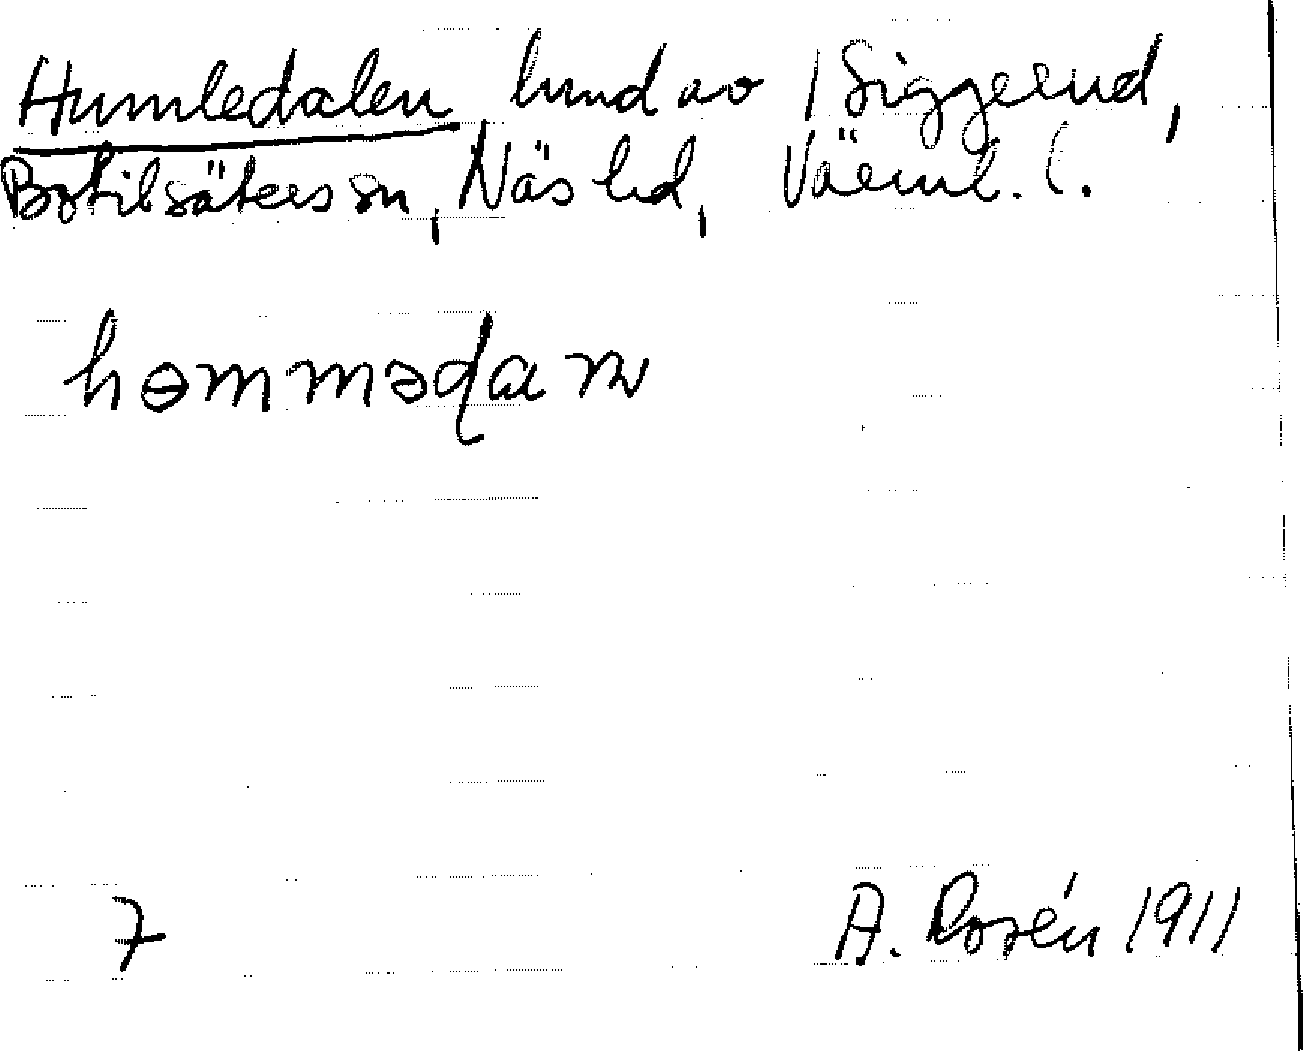 Humledalen hmd av 1 Siggerud,
Botilsäters sn, Näs hd, Värml. l.
hɵmmədan
7 A. Rosén 1911